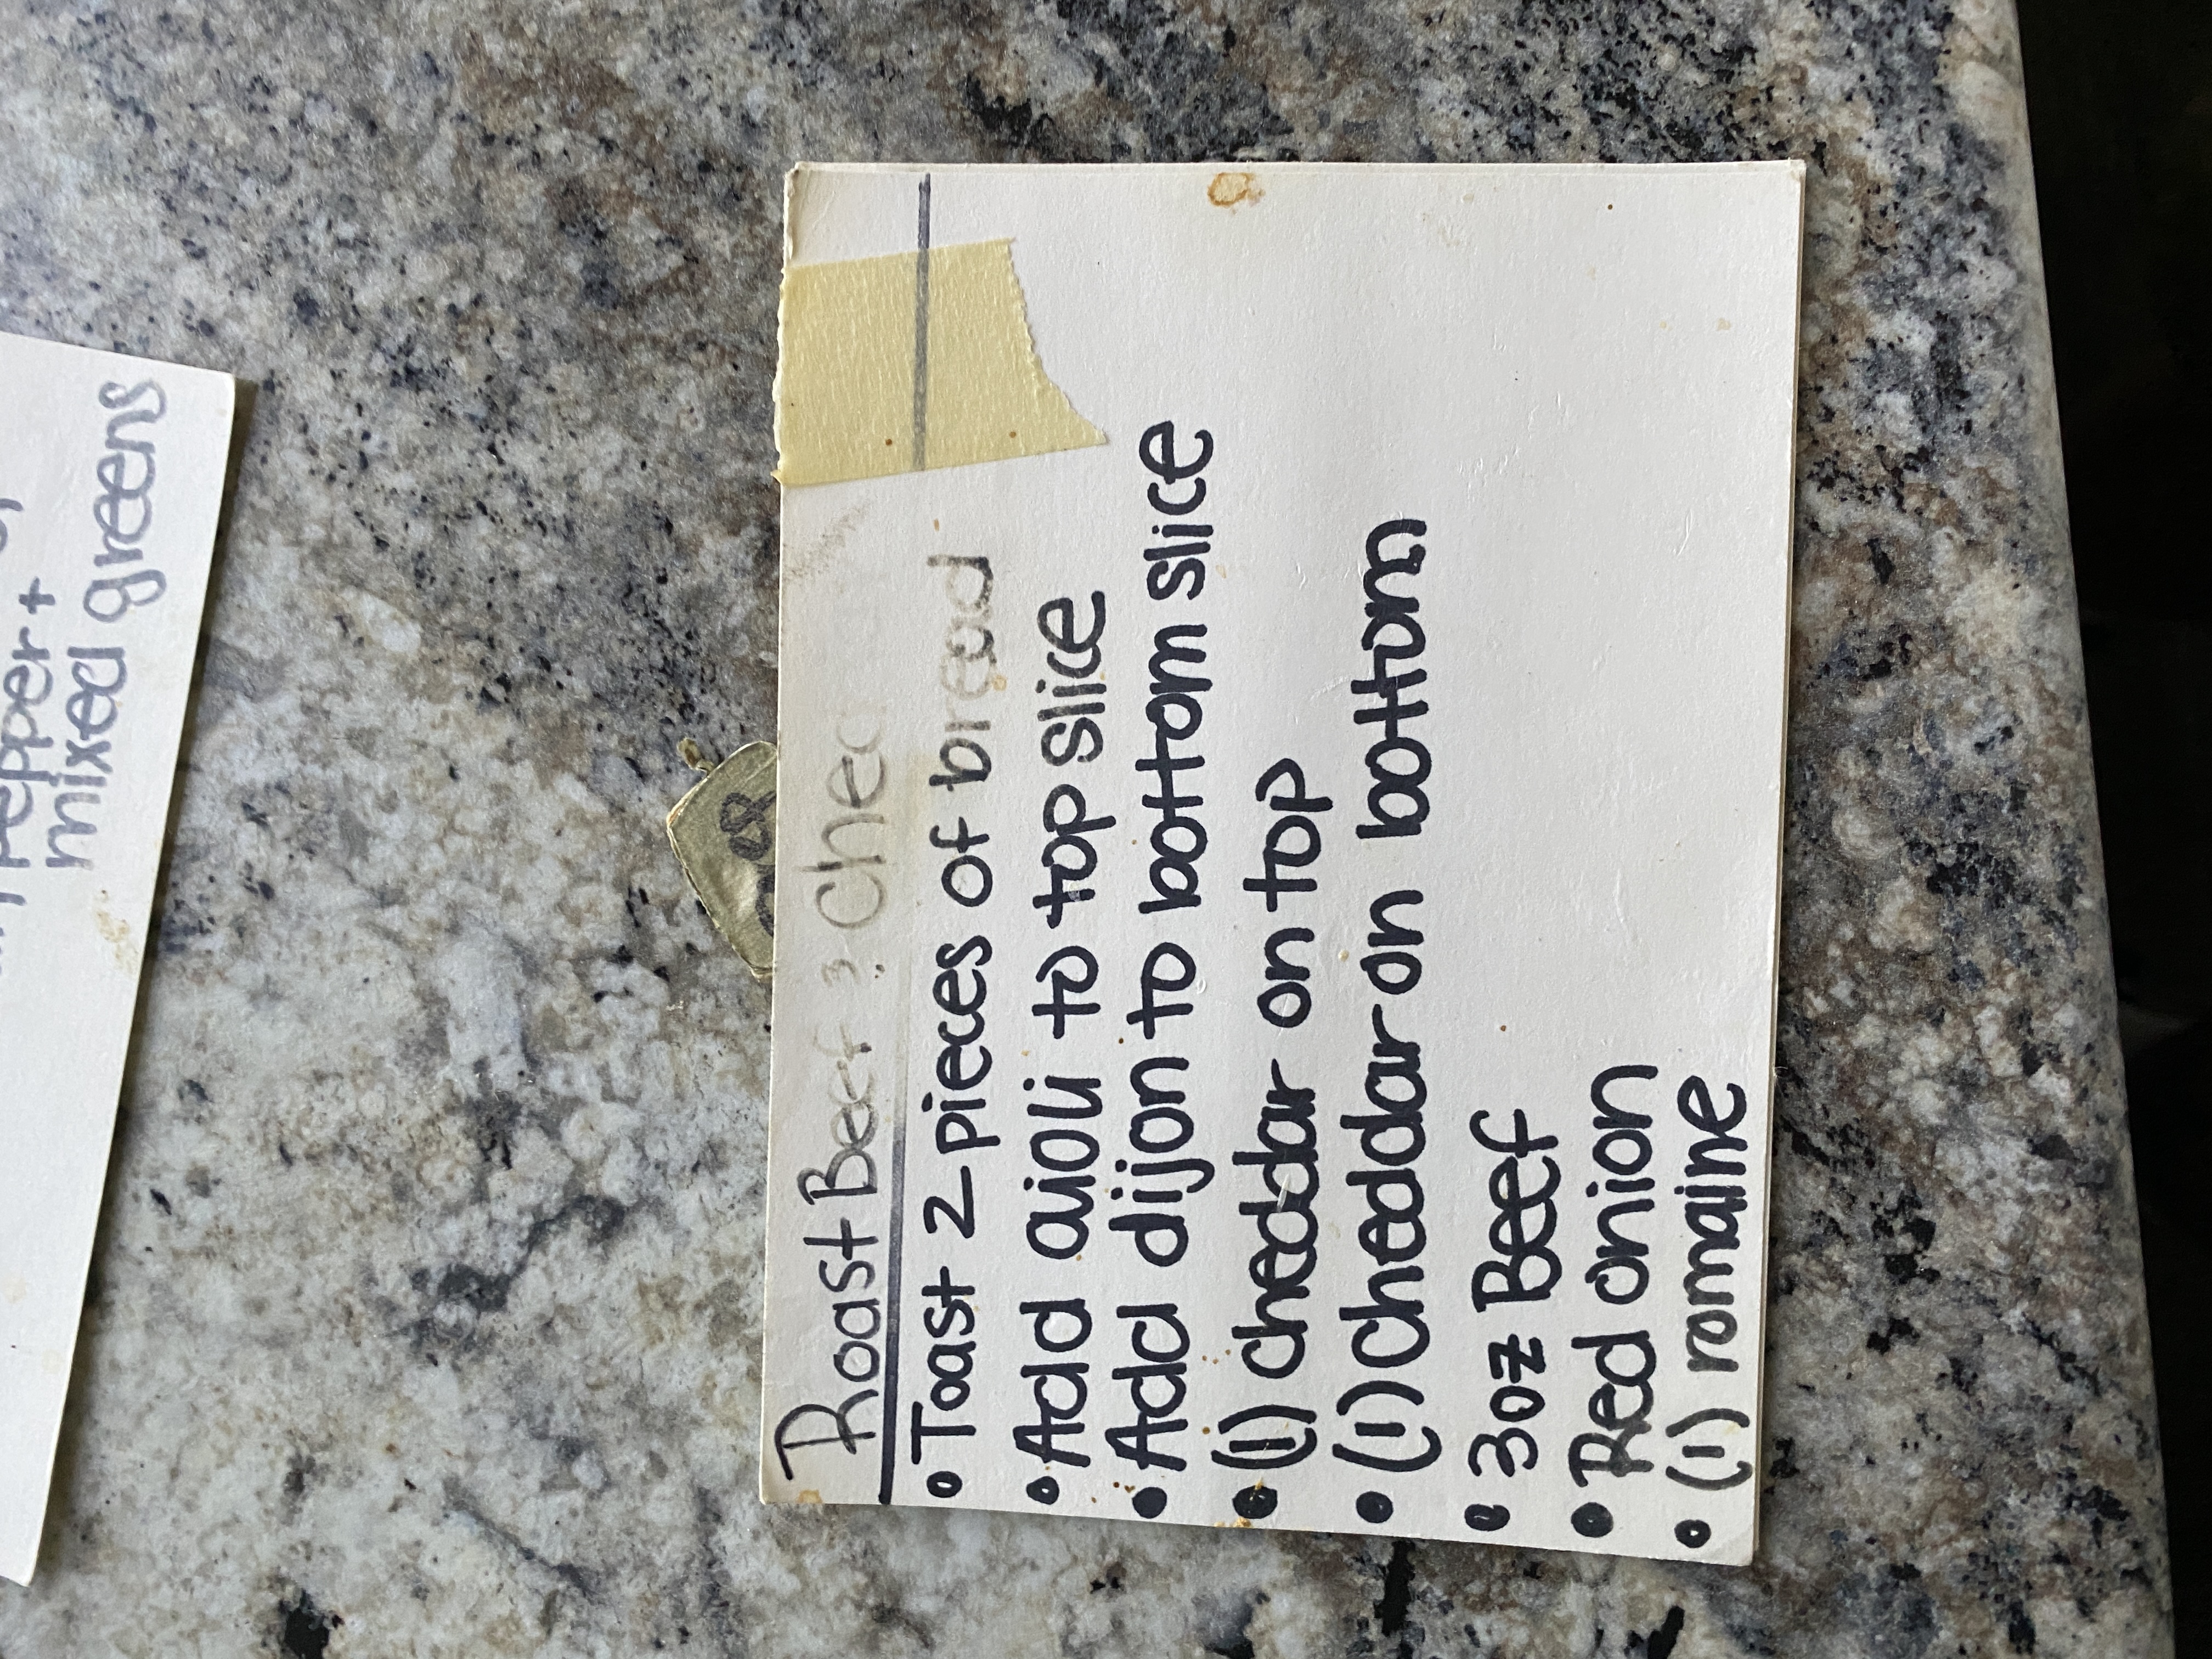 Roast Beef & Chec
• Toast 2 pieces of bread
• Add aioli to top slice
• Add dijon to bottom slice
• (1) cheddar on top
• (1) Cheddar on bottom
• 3oz Beef
• Red onion
• (1) romaine
pepper +
mixed greens